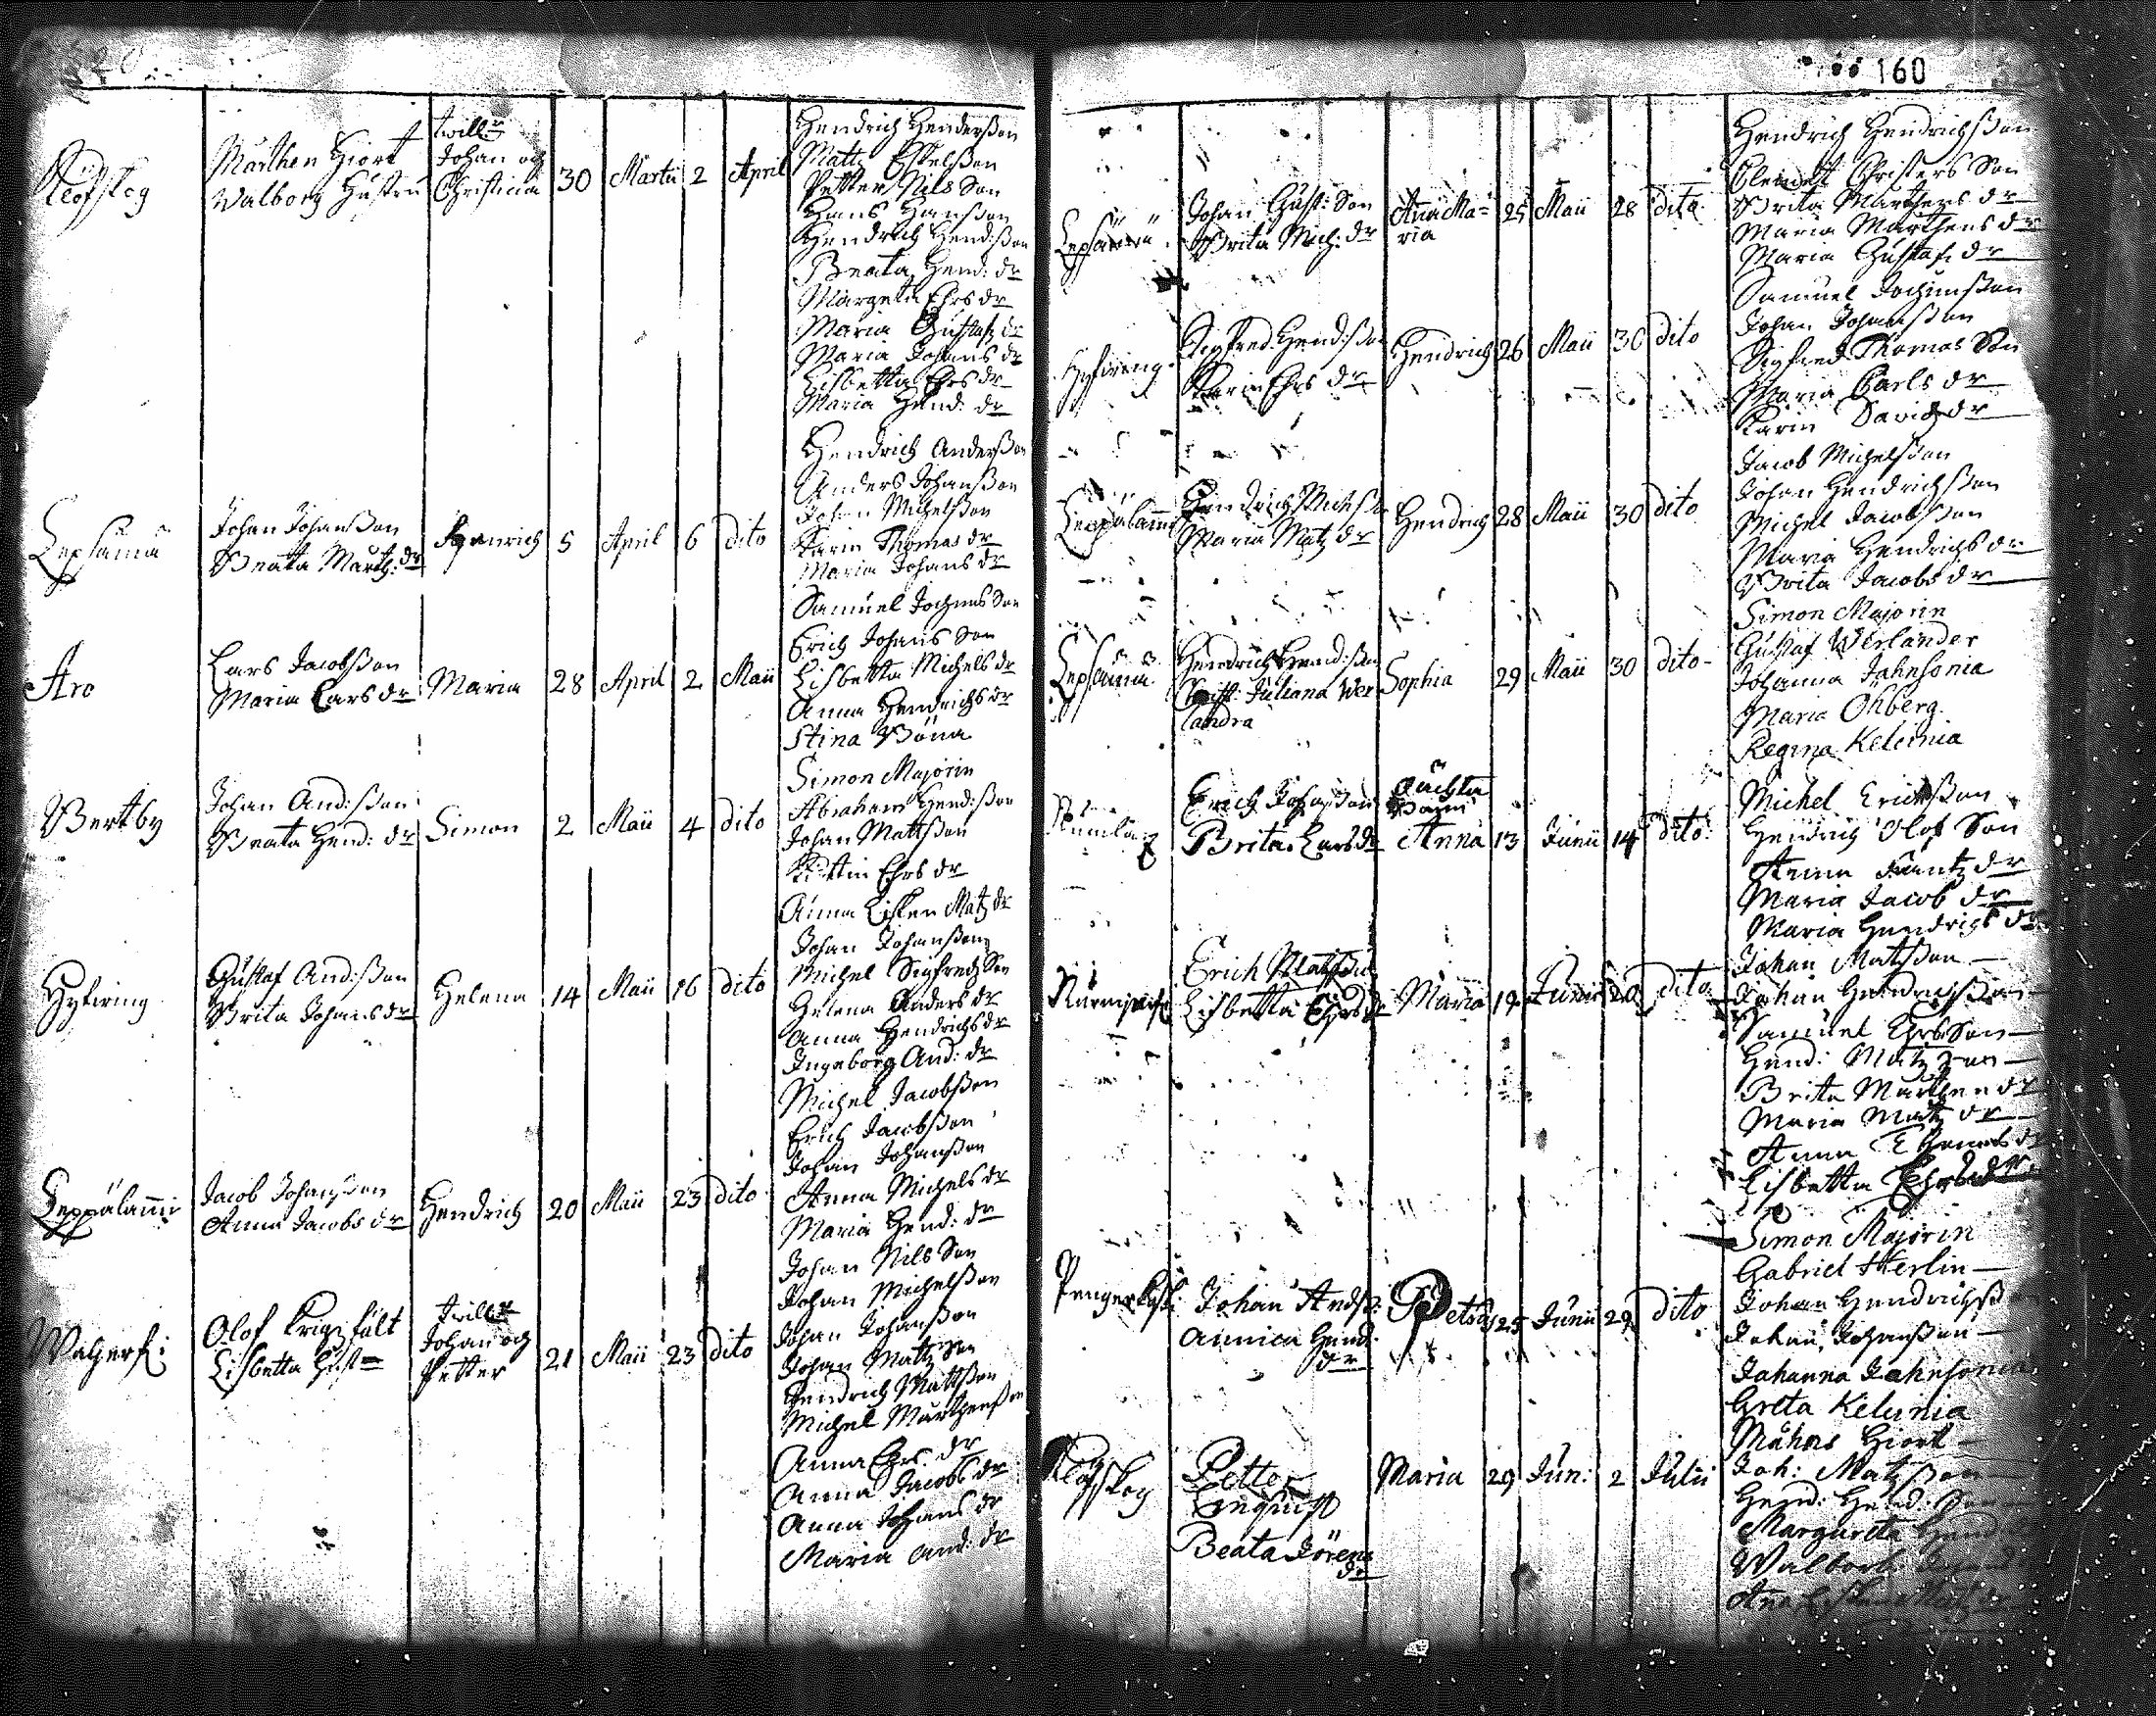 160
Klöfskog
Mårthen Hiort
Walborg Hustru
twill:r
Johan och
Christina
30 Martii 2 April
Hendrich Henderßon
Matts Eskelßon
Petter Nils Son
Hans Hansson
Hendrich Hend:ßon
Beata Hend: dr
Margeta Ehrs dr
Maria Gustafz dr
Maria Johans dr
Lisbetta Ehrs dr
Maria Hend: dr
Lepsämä
Johan Johanßon
Beata Mårth: dr
Henrich
5 April 6 dito
Hendrich Anderßon
Anders Johanßon
Johan Michelßon
Karin Thomas dr
Maria Johans dr
Aro
Lars Jacobßon
Maria Lars dr
Maria
28 April 2 Maii
Samuel Jochims Son
Erich Johans Son
Lisbetta Michels dr
Anna Hendrichs dr
Stina Böna
Wertby
Johan And:ßon
Beata Hend: dr
Simon
2 Maii 4 dito
Simon Majorin
Abraham Hend:ßon
Johan Mattßon
Kirstin Ehrs dr
Anna Lisken Matz dr
Hyfwing
Gustaf And:ßon
Brita Johans dr
Helena
14 Maii 16 dito
Johan Johanßon
Michel Sigfredz Son
Helena Anders dr
Anna Hendrichs dr
Ingeborg And: dr
Leppälammi
Jacob Johanßon
Anna Jacobs dr
Hendrich
20 Maii 23 dito
Michel Jacobßon
Erich Jacobßon
Johan Johanßon
Anna Michels dr
Maria Hend: dr
Olof Krigzfält
Lisbetta Hust
twill:r
Johan och
Petter
21 Maii 23 dito
Johan Nils Son
Johan Michelßon
Johan Johanßon
Johan Matz Son
Hendrich Mattßon
Michel Mårthenßon
Anna Ehrs dr
Anna Jacobs dr
Anna Johans dr
Maria And: dr
Lepsämä
Johan Gust: Son
Brita Mich: dr
Anna Ma=
ria
25 Maii 28 dito
Hendrich Hendrichßon
Clemet Christers Son
Brita Mårthens dr
Maria Mårthens dr
Maria Gustafz dr
Hyfwing
Sigfred Hend:ßon
Karin Ehrs dr
Hendrich
26 Maii 30 dito
Samuel Jochimßon
Johan Johanßon
Sigfred Thomas Son
Maria Carls dr
Karin Davidz dr
Leppälammi
Hendrich Michßon
Maria Matz dr
Hendrich
28 Maii 30 dito
Jacob Michelßon
Johan Hendrichßon
Michel Jacobßon
Maria Hendrichs dr
Brita Jacobs dr
Lepsämä
Hendrich Hend:ßon
Juliana Wer
landra
Sophia
29 Maii 30 dito
Simon Majorin
Gustaf Werlander
Johanna Jahnsonia
Maria Öhberg
Regina Kelcinia
Erich Johanßon
Brita Lars dr
Anna
13 Junii 14 dito
Michel Erichßon
Hendrich Olof Son
Anna Frantz dr
Maria Jacob dr
Maria Hendrichs dr
Nurmijerf
Erich Matßon
Lisbetta Ehrs dr
Maria
19 Junii 20 dito
Johan Matßon
Johan Hendrichßon
Samuel Ehrs Son
Hend: Matzson
Brita Mårthen dr
Maria Matz dr
Anna Thomas dr
Lisbetta Ehrs dr
Johan Andß:
Annica Hend:
dr
Petrus
25 Junii 29 dito
Simon Majorin
Gabriel Herlin
Johan Hendrichßon
Johan Johanßon
Johanna Jahnsonia
Greta Kelcinia
Klöfskog
Petter
Enquist
Beata Jörens
dr
Maria
29 Jun: 2 Julii
Måhns Hiort
Joh: Matzßon
Hend: Hend: Son
Margareta Hend
Walborh